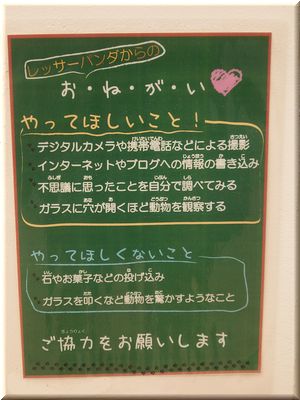 レッサーパンダからの
お・ね・が・い
やってほしいこと！
・デジタルカメラや携帯電話などによる撮影
・インターネットやブログへの情報の書き込み
・不思議に思ったことを自分で調べてみる
・ガラスに穴が開くほど動物を観察する
やってほしくないこと
・石やお菓子などの投げ込み
・ガラスを叩くなど動物を驚かすようなこと
ご協力をお願いします